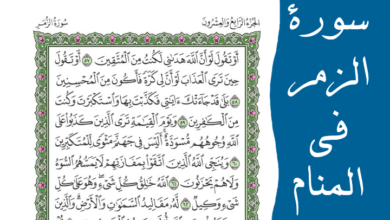 الجزء الرابع والعشرون
سورة الزمر
أو تقول لو أن الله هدىني لكنت من المتقين ٥٧ أو تقول
حين ترى العذاب لو أن لي كرة فأكون من المحسنين
٥٨ بلى قد جاءتك ءايتي فكذبت بها واستكبرت وكنت
من الكفرين ٥٩ ويوم القيمة ترى الذين كذبوا على
الله وجوههم مسودة أليس في جهنم مثوى للمتكبرين
٦٠ وينجي الله الذين اتقوا بمفازتهم لا يمسهم السوء
ولا هم يحزنون ٦١ الله خلق كل شيء وهو على كل
شيء وكيل ٦٢ له مقاليد السموات والأرض والذين
سورة
الزمر
فى
المنام